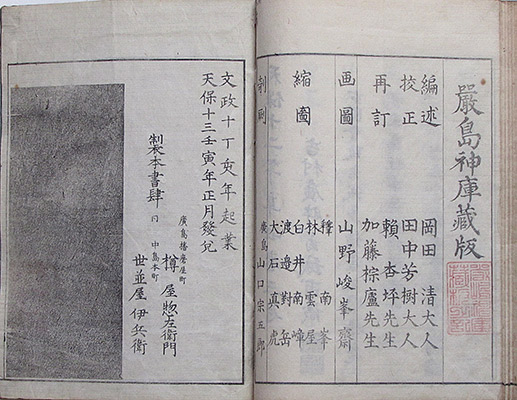 嚴島神庫藏版
編述 岡田清大人
校正 田中芳樹大人
賴杏坪先生
再訂 加藤棕廬先生
画圖 山野峻峯齋
縮圖 釋南峯
林雲屋
白井南嶂
渡邉對岳
大石眞虎
剞劂 廣島 山口宗五郎
文政十丁亥年起業
天保十三壬寅年正月發兌
製本書肆
廣島播磨屋町 樽屋惣左衛門
同 中島本町 世並屋伊兵衛